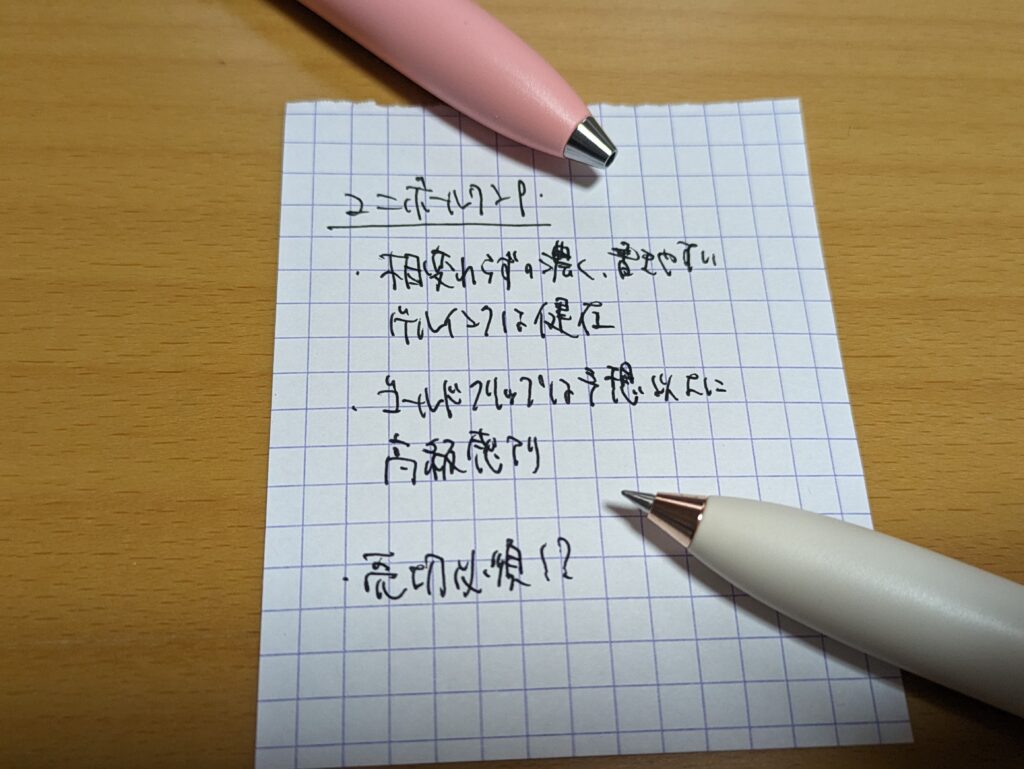 ユニボールワンP.
・相変わらずの濃く、書きやすい
ゲルインクは健在
・ゴールドクリップは予想以上に
高級感アリ
・売切必須!?